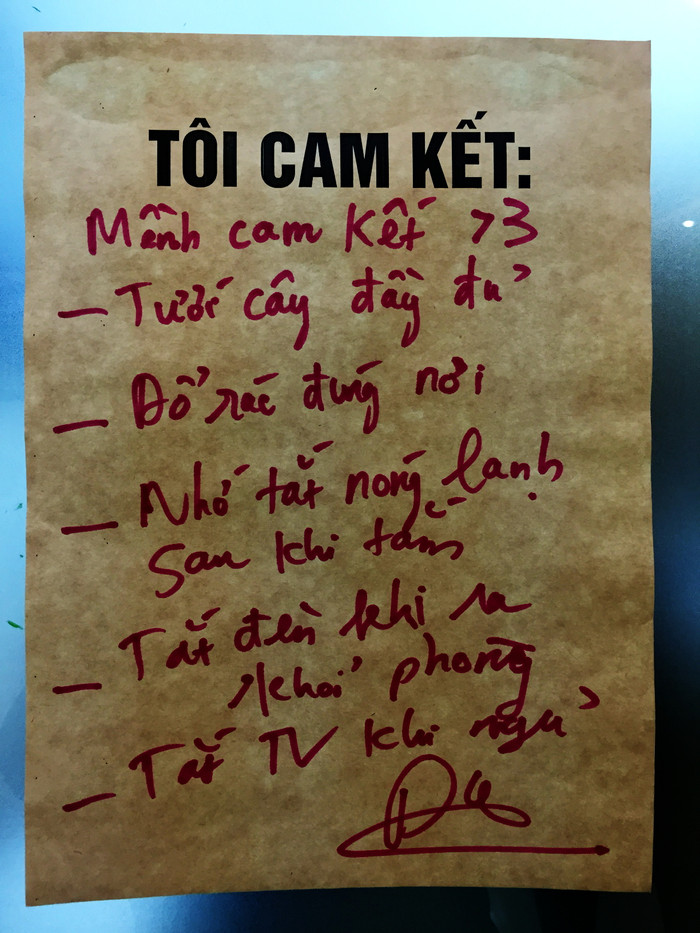 TÔI CAM KẾT:
Mềnh cam kết >3
— Tưới cây đầy đủ
— Đổ rác đúng nơi
— Nhớ tắt nóng lạnh
sau khi tắm
— Tắt đèn khi ra
khỏi phòng
— Tắt TV khi ngủ